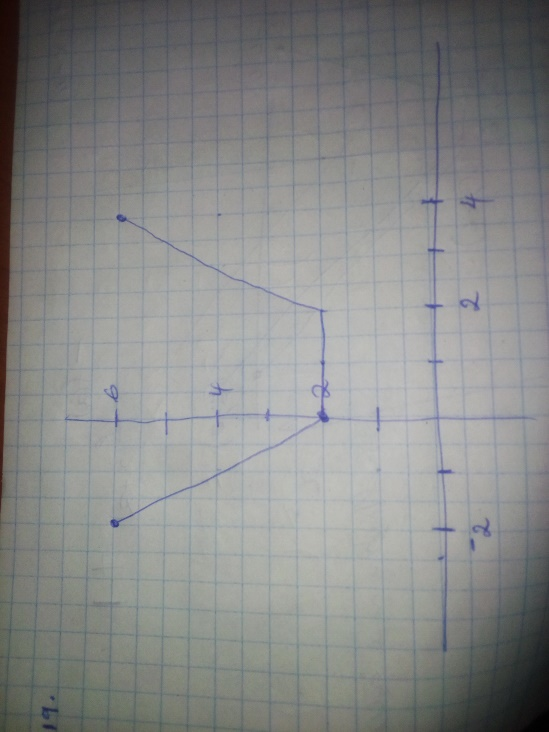 19.
6
4
2
-2
2
4